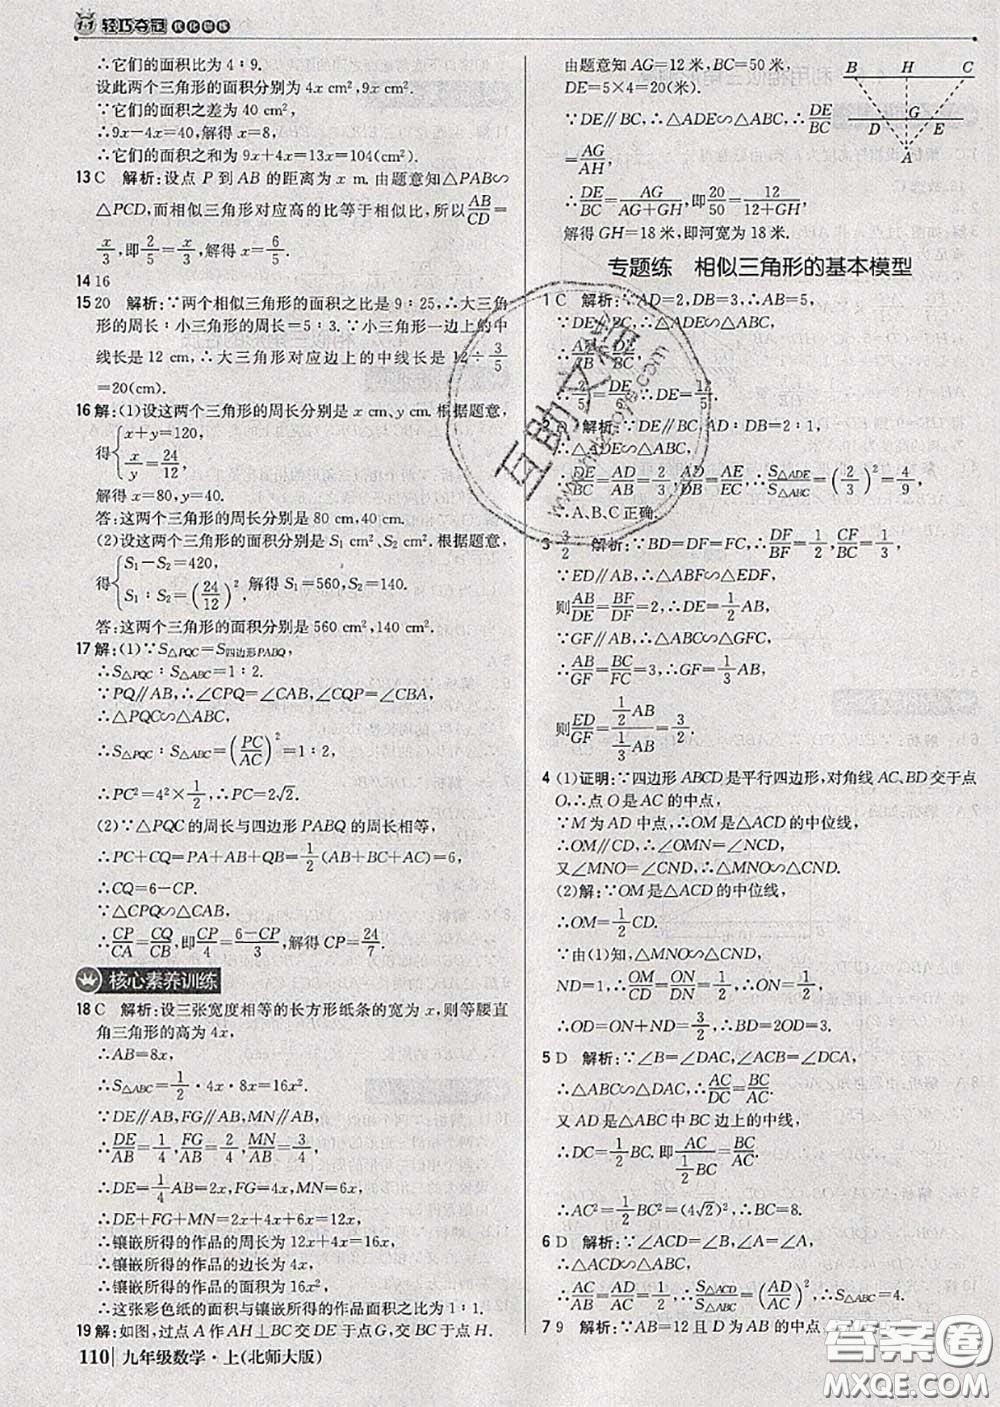 1+1 轻巧夺冠 优化训练
∴它们的面积比为 4∶9.
设此两个三角形的面积分别为 4x cm²,9x cm².
∵它们的面积之差为 40 cm²,
∴9x-4x=40,解得 x=8,
∴它们的面积之和为 9x+4x=13x=104(cm²).
13 C 解析:设点 P 到 AB 的距离为 x m.由题意知△PAB∽
△PCD,而相似三角形对应高的比等于相似比,所以AB/CD=
x/3,即2/5=x/3,解得 x=6/5.
14 16
15 20 解析:∵两个相似三角形的面积之比是 9∶25,∴大三角
形的周长∶小三角形的周长=5∶3.∵小三角形一边上的中
线长是 12 cm,∴大三角形对应边上的中线长是 12÷3/5
=20(cm).
16 解:(1)设这两个三角形的周长分别是 x cm,y cm.根据题意,
得{x+y=120, x/y=24/12,
解得 x=80,y=40.
答:这两个三角形的周长分别是 80 cm,40 cm.
(2)设这两个三角形的面积分别是 S₁ cm²、S₂ cm².根据题意,
得{S₁-S₂=420, S₁∶S₂=(24/12)², 解得 S₁=560,S₂=140.
答:这两个三角形的面积分别是 560 cm²,140 cm².
17 解:(1)∵S△PQC=S四边形PABQ,
∴S△PQC∶S△ABC=1∶2.
∵PQ∥AB,∴∠CPQ=∠CAB,∠CQP=∠CBA,
∴△PQC∽△ABC,
∴S△PQC∶S△ABC=(PC/AC)²=1∶2,
∴PC²=4²×1/2,∴PC=2√2.
(2)∵△PQC的周长与四边形PABQ的周长相等,
∴PC+CQ=PA+AB+QB=1/2(AB+BC+AC)=6,
∴CQ=6-CP.
∵△CPQ∽△CAB,
∴CP/CA=CQ/CB,即CP/4=6-CP/3,解得 CP=24/7.
核心素养训练
18 C 解析:设三张宽度相等的长方形纸条的宽为 x,则等腰直
角三角形的高为 4x,
∴AB=8x,
∴S△ABC=1/2·4x·8x=16x².
∵DE∥AB,FG∥AB,MN∥AB,
∴DE/AB=1/4,FG/AB=2/4,MN/AB=3/4,
∴DE=1/4AB=2x,FG=4x,MN=6x,
∴DE+FG+MN=2x+4x+6x=12x,
∴镶嵌所得的作品的周长为 12x+4x=16x,
∴镶嵌所得的作品的边长为 4x,
∴镶嵌所得的作品的面积为 16x²,
∴这张彩色纸的面积与镶嵌所得的作品面积比为 1∶1.
19 解:如图,过点 A 作 AH⊥BC 交 DE 于点 G,交 BC 于点 H.
110 九年级数学·上(北师大版)
由题意知 AG=12 米,BC=50 米,
DE=5×4=20(米).
∵DE∥BC,∴△ADE∽△ABC,∴DE/BC
=AG/AH,
∴DE/BC=AG/AG+GH,即20/50=12/12+GH,
解得 GH=18 米,即河宽为 18 米.
B H C
D G E
A
专题练 相似三角形的基本模型
1 C 解析:∵AD=2,DB=3,∴AB=5,
∵DE∥BC,∴△ADE∽△ABC,
∴AD/AB=DE/BC,
∴2/5=DE/6,∴DE=12/5.
解析:∵DE∥BC,AD∶DB=2∶1,
∴△ADE∽△ABC,
∴DE/BC=AD/AB=2/3,AD/AB=AE/AC,∴S△ADE/S△ABC=(2/3)²=4/9,
∴A,B,C正确.
3 3/2 解析:∵BD=DF=FC,∴DF/BF=1/2,CF/BC=1/3,
∵ED∥AB,∴△ABF∽△EDF,
则AB/DE=BF/DF=2,∴DE=1/2AB,
∵GF∥AB,∴△ABC∽△GFC,
∴AB/GF=BC/FC=3,∴GF=1/3AB,
则ED/GF=1/2AB/1/3AB=3/2.
4 (1)证明:∵四边形 ABCD是平行四边形,对角线 AC,BD交于点
O,∴点 O 是 AC 的中点,
∵M 为 AD 中点,∴OM 是△ACD 的中位线,
∴OM∥CD,∴∠OMN=∠NCD,
又∠MNO=∠CND,∴△MNO∽△CND.
(2)解:∵OM是△ACD 的中位线,
∴OM=1/2CD.
∵由(1)知,△MNO∽△CND,
ND=1,∴OM/CD=ON/ND=1/2,∴ON=1/2,
∴OD=ON+ND=3/2,∴BD=2OD=3.
5 D 解析:∵∠B=∠DAC,∠ACB=∠DCA,
∴△ABC∽△DAC,∴AC/DC=BC/AC.
又AD是△ABC 中 BC 边上的中线,
∴DC=1/2BC.即AC/1/2BC=BC/AC,
∴AC²=1/2BC²=(4√2)²,∴BC=8.
6 D 解析:∵∠ACD=∠B,∠A=∠A,
∴△ACD∽△ABC,
∴AC/AB=AD/AC=1/2,∴S△ACD/S△ABC=(AD/AC)²,∴S△ABC=4.
7 9 解析:∵AB=12 且 D 为 AB 的中点,
互助文库
答案圈
MXQE.COM